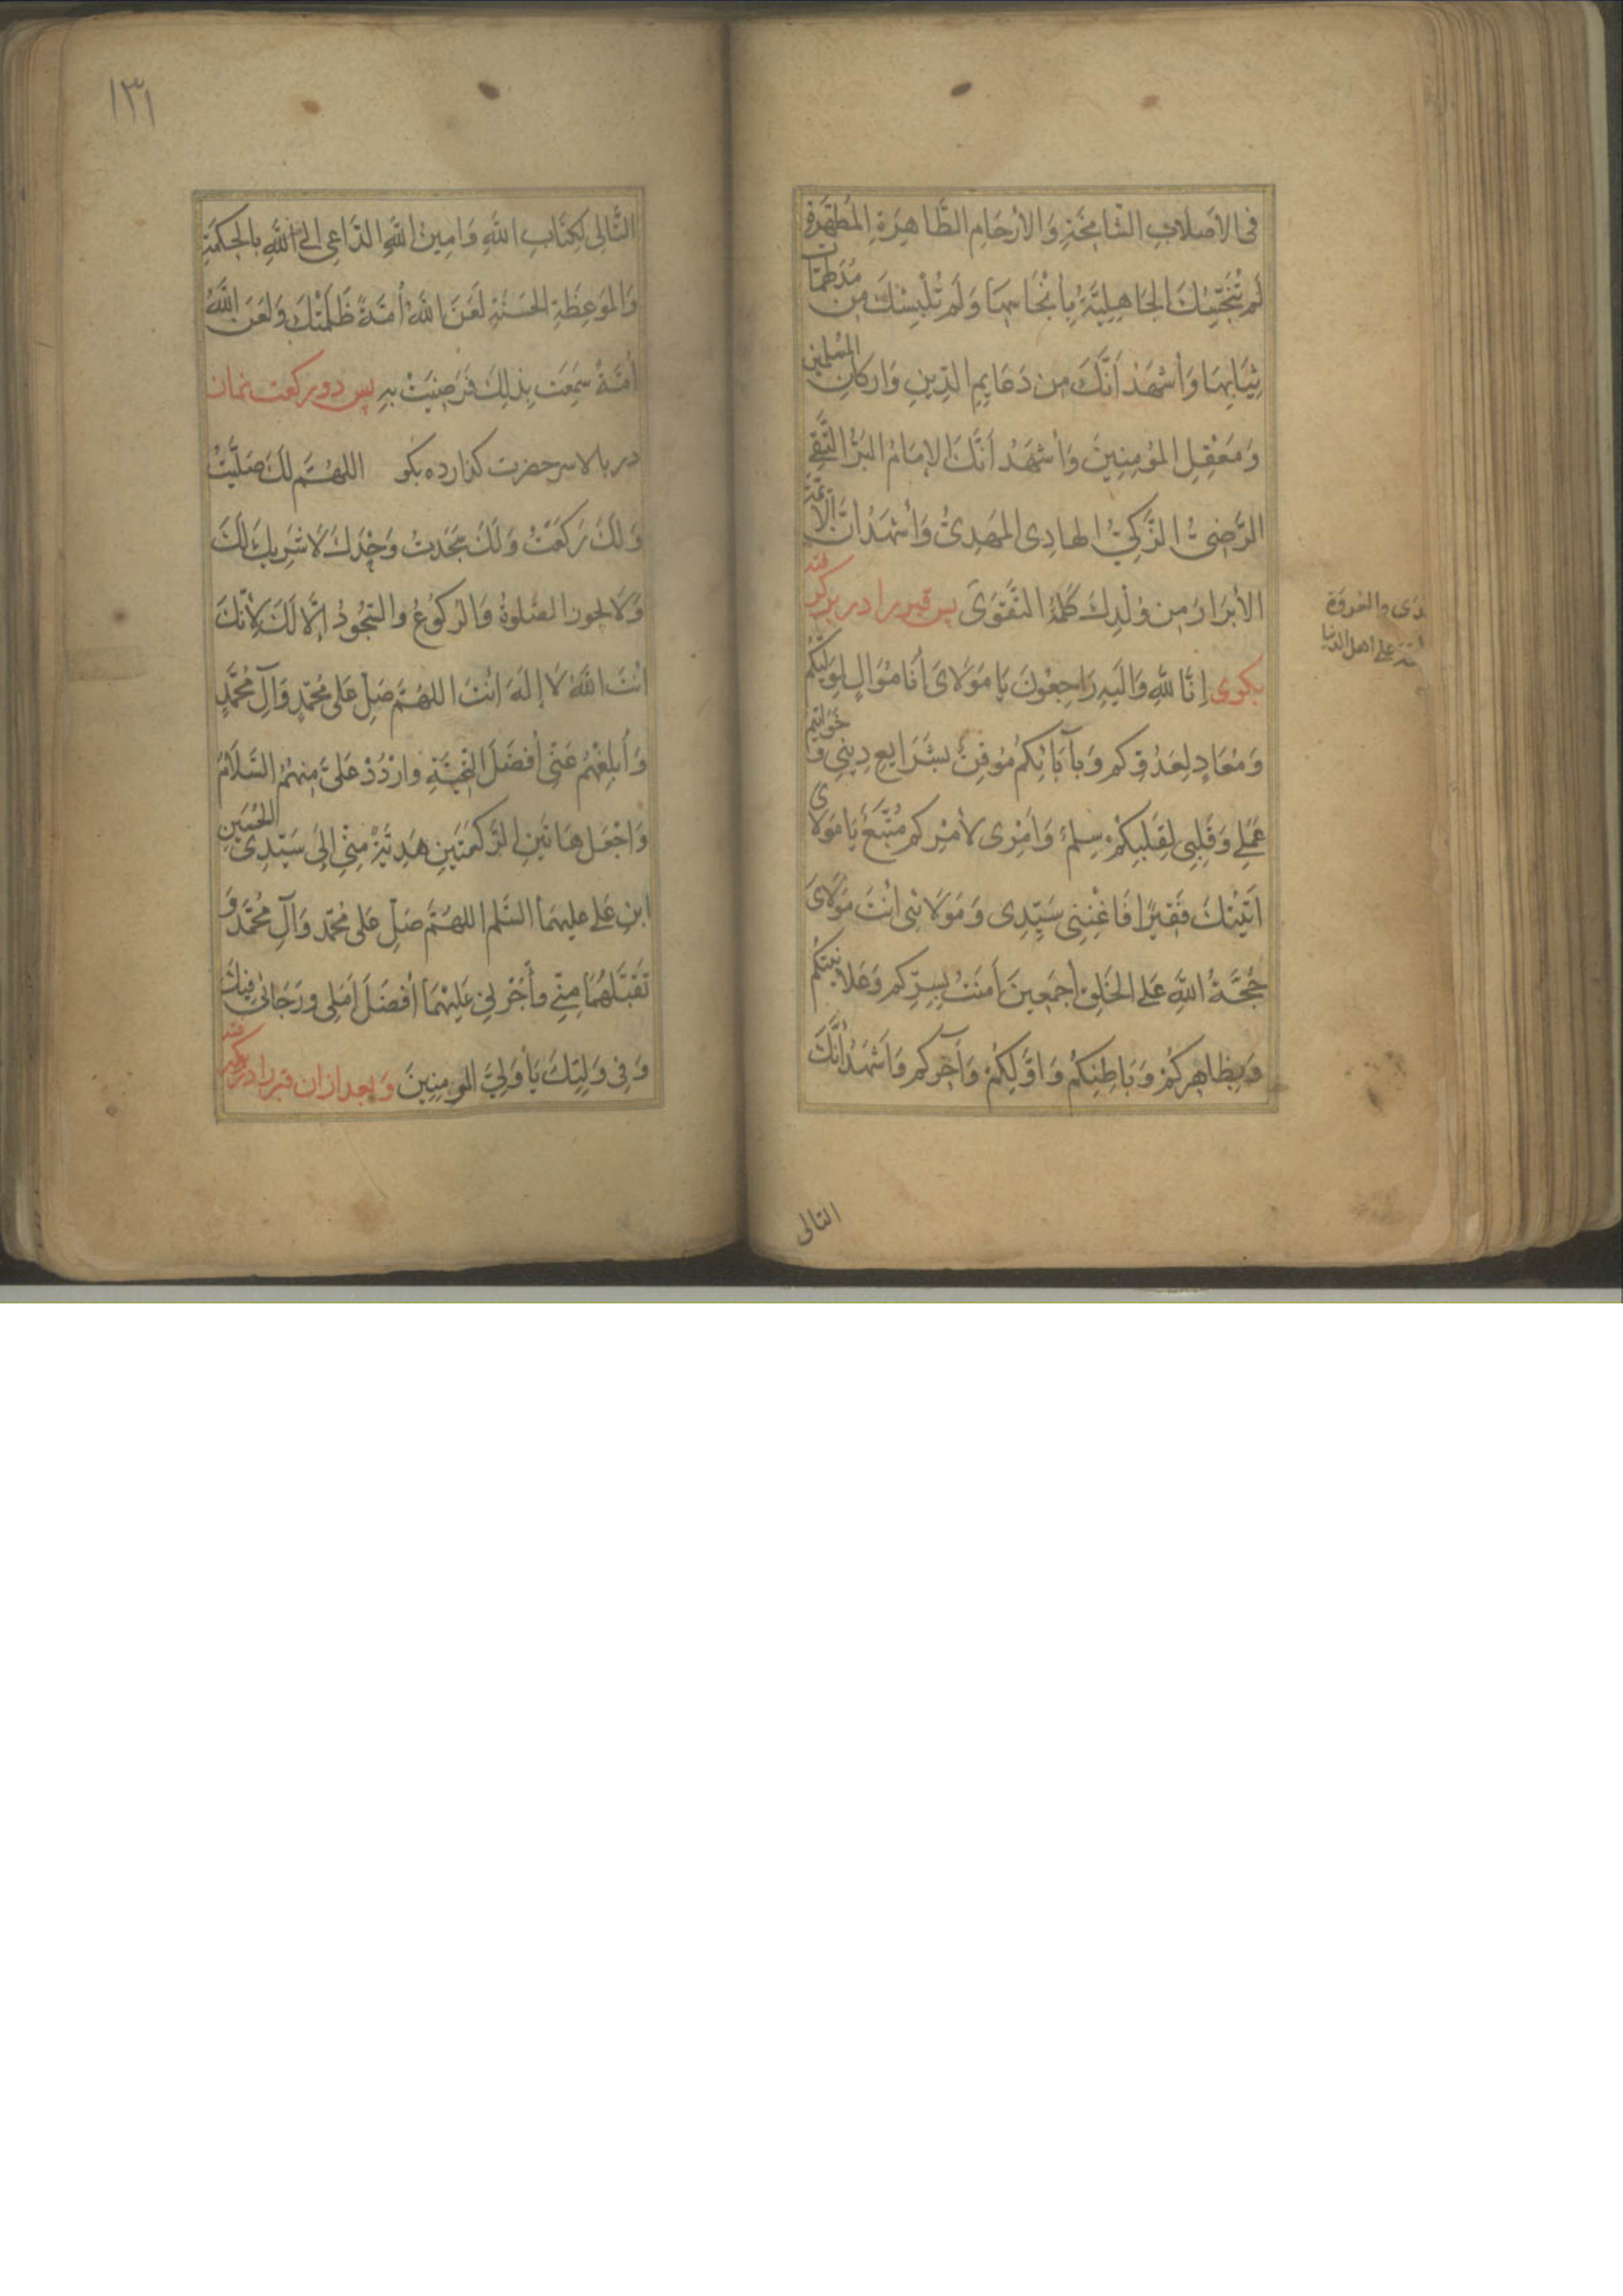 فِى الأَصلَابِ الشَّامِخَةِ وَ الأَرحَامِ الطَّاهِرَةِ المُطَهَّرَةِ
لَم تُنَجِّسْكَ الجَاهِلِيَّةُ بِأَنْجَاسِهَا وَ لَم تُلْبِسْكَ مِن مُدلَهِمَّات
ثِيَابِهَا وَ أَشْهَدُ أَنَّكَ مِن دَعَايِمِ الدِّينِ وَ اَركَانِ المُسلِمِينَ
وَ مَعْقِلِ المُؤمِنِينَ وَ أَشْهَدُ أَنَّكَ الإِمَامُ البَرُّ التَّقِىُّ
الرَّضِىُّ الزَّكِىُّ الهَادِى المَهدِىُّ وَ أَشْهَدُ أَنَّ الأَئِمَّةَ
الأَبرَارَ مِن وُلْدِكَ كَلِمَةُ التَّقْوَىٰ پس قبر را در بر گرفته
بگوى إِنَّا لِلَّهِ وَ اِلَيهِ رَاجِعُونَ يَا مَولَاىَ أَنَا مُوَالٍ لِوَلِيِّكُم
وَ مُعَادٍ لِعَدُوِّكُم وَ بِآبَائِكُم مُوقِنٌ بِشَرَايِعِ دِينِى وَ خَوَاتِيمِ
عَمَلِى وَ قَلْبِى لِقَلْبِكُمْ سِلمٌ وَ اَمْرِى لِأَمْرِكُم مُتَّبِعٌ يَا مَولَاى
اَتَيْتُكَ فَقِيرًا فَاَغْنِنِى سَيِّدِى وَ مَولَائى اَنْتَ مَولَاىَ
حُجَّةُ اللَّهِ عَلَى الخَلقِ أَجمَعِينَ اَمَنتُ بِسِرِّكُم وَ عَلَانِيَتِكُم
وَ بِظَاهِرِكُمْ وَ بَاطِنِكُم وَ اَوَّلِكُمْ وَ آخِرِكُم وَ اَشْهَدُ أَنَّكَ
والعروة
على اهل الدنيا
التالى
١٣١
التَّالِى لِكِتَابِ اللَّهِ وَ اَمِينُ اللَّهِ الدَّاعِى اِلَى اللَّهِ بِالحِكمَةِ
وَ المَوعِظَةِ الحَسَنَةِ لَعَنَ اللَّهُ أُمَّةً ظَلَمَتْكَ وَ لَعَنَ اللَّهُ
أُمَّةً سَمِعَت بِذَلِكَ فَرَضِيَتْ بِهِ پس دو ركعت نماز
در بالا سر حضرت گذارده بگو اللهُمَّ لَكَ صَلَّيْتُ
وَ لَكَ رَكَعْتُ وَ لَكَ سَجَدتُ وَحْدَكَ لَا شَرِيكَ لَكَ
وَ لَا يجوز الصَّلوةُ وَ الرُكُوعُ و السُّجُودُ اِلَّا لَكَ لِأَنَّكَ
اَنْتَ اللَّهُ لَا إِلَهَ اَنْتَ اللهُمَّ صَلِّ عَلَى مُحَمَّدٍ وَ آلِ مُحَمَّدٍ
وَ أَبلِغْهُم عَنِّى أَفضَلَ التَّحِيَّةِ و ارْدُدْ عَلَىَّ مِنهُمُ السَّلَامَ
وَ اجْعَل هَاتَينِ الرَّكعَتَينِ هَدِيَّةً مِنِّى إِلَى سَيِّدِى الحُسَينِ
ابنِ عَلى عليهما السَّلم اللهُمَّ صَلِّ عَلَى مُحَمَّد وَ آلِ مُحَمَّدٍ وَ
تَقَبَّلهُمَا مِنِّى وَ أْجُرْنِى عَلَيْهِمَا أَفضَلَ أَمَلِى وَ رَجَائِى فِيكَ
وَ فِى وَلِيِّكَ يَا وَلِىَّ المُومِنِينَ و بعد ازان قبر را در بر گرفته